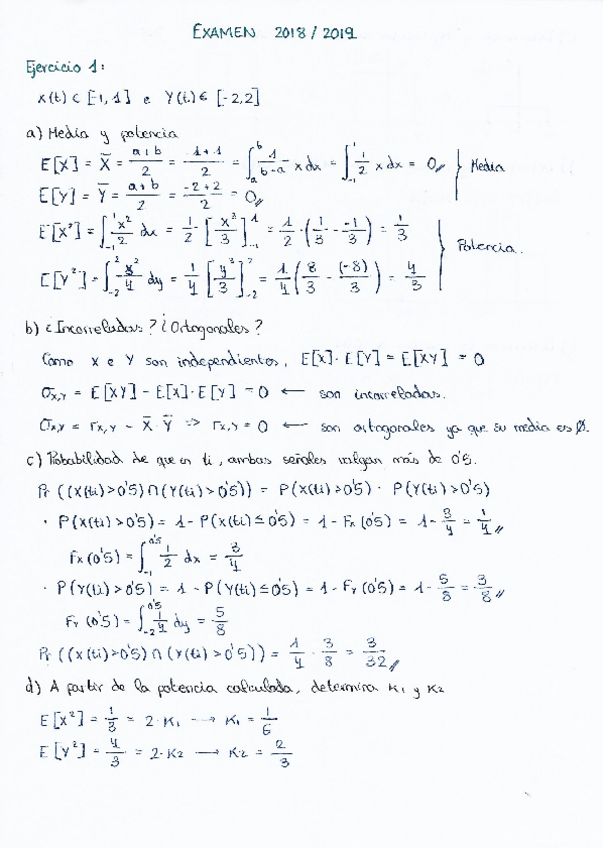 EXAMEN 2018/2019
Ejercicio 1:
X(t) ∈ [-1,1] e Y(t) ∈ [-2,2]
a) Media y potencia
E[X] = X̄ = (a+b)/2 = (-1+1)/2 = ∫_a^b 1/(b-a) x dx = ∫_{-1}^1 1/2 x dx = 0 // } Media
E[Y] = Ȳ = (a+b)/2 = (-2+2)/2 = 0 //
E[X²] = ∫_{-1}^1 x²/2 dx = 1/2 · [x³/3]_{-1}^1 = 1/2 · (1/3 - -1/3) = 1/3 } Potencia.
E[Y²] = ∫_{-2}^2 y²/4 dy = 1/4 [y³/3]_{-2}^2 = 1/4 (8/3 - (-8)/3) = 4/3
b) ¿Incorreladas? ¿Ortogonales?
Como X e Y son independientes, E[X]·E[Y] = E[XY] = 0
σx,y = E[XY] - E[X]·E[Y] = 0 ← son incorreladas.
σx,y = rx,y - X̄·Ȳ => rx,y = 0 ← son ortogonales ya que su media es Ø.
c) Probabilidad de que en ti, ambas señales valgan más de 0'5.
Pr ((X(ti)>0'5)∩(Y(ti)>0'5)) = P(X(ti)>0'5) · P(Y(ti)>0'5)
· P(X(ti)>0'5) = 1 - P(X(ti)≤0'5) = 1 - Fx(0'5) = 1 - 3/4 = 1/4 //
Fx(0'5) = ∫_{-1}^{0'5} 1/2 dx = 3/4
· P(Y(ti)>0'5) = 1 - P(Y(ti)≤0'5) = 1 - FY(0'5) = 1 - 5/8 = 3/8 //
FY(0'5) = ∫_{-2}^{0'5} 1/4 dy = 5/8
Pr ((X(ti)>0'5)∩(Y(ti)>0'5)) = 1/4 · 3/8 = 3/32 //
d) A partir de la potencia calculada, determina K1 y K2
E[X²] = 1/3 = 2·K1 → K1 = 1/6
E[Y²] = 4/3 = 2·K2 → K2 = 2/3